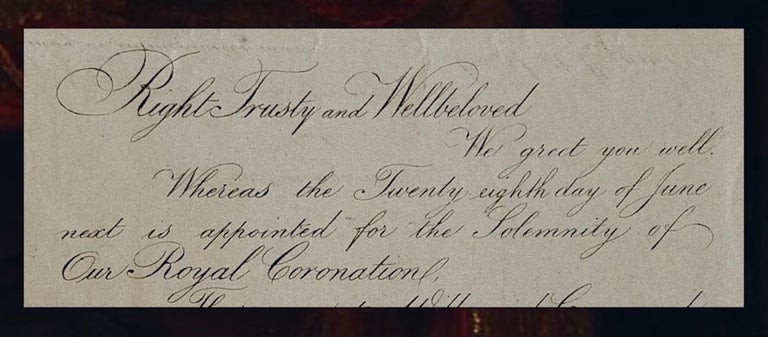 Right Trusty and Wellbeloved
We greet you well.
Whereas the Twenty eighth day of June
next is appointed for the Solemnity of
Our Royal Coronation.